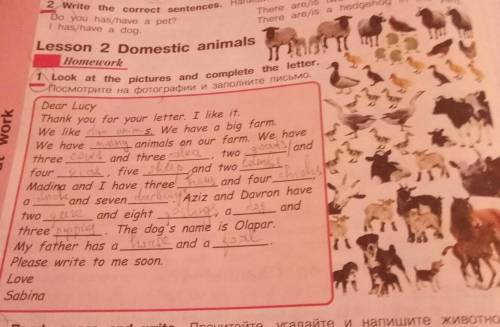 2 Write the correct sentences.
Do you has/have a pet?
I has/have a dog.
There are/is
There are/is a hedgehog in
Lesson 2 Domestic animals
Homework
1 Look at the pictures and complete the letter.
Посмотрите на фотографии и заполните письмо.
Dear Lucy
Thank you for your letter. I like it.
We like s. We have a big farm.
We have many animals on our farm. We have
three cows and three, two goats and
four, five sheep and two
Madina and I have three hens and four chicks
a duck and seven Aziz and Davron have
two geese and eight goslings a dog and
three puppies. The dog's name is Olapar.
My father has a horse and a foal.
Please write to me soon.
Love
Sabina
at work
and write. Прочитайте, угадайте и напишите